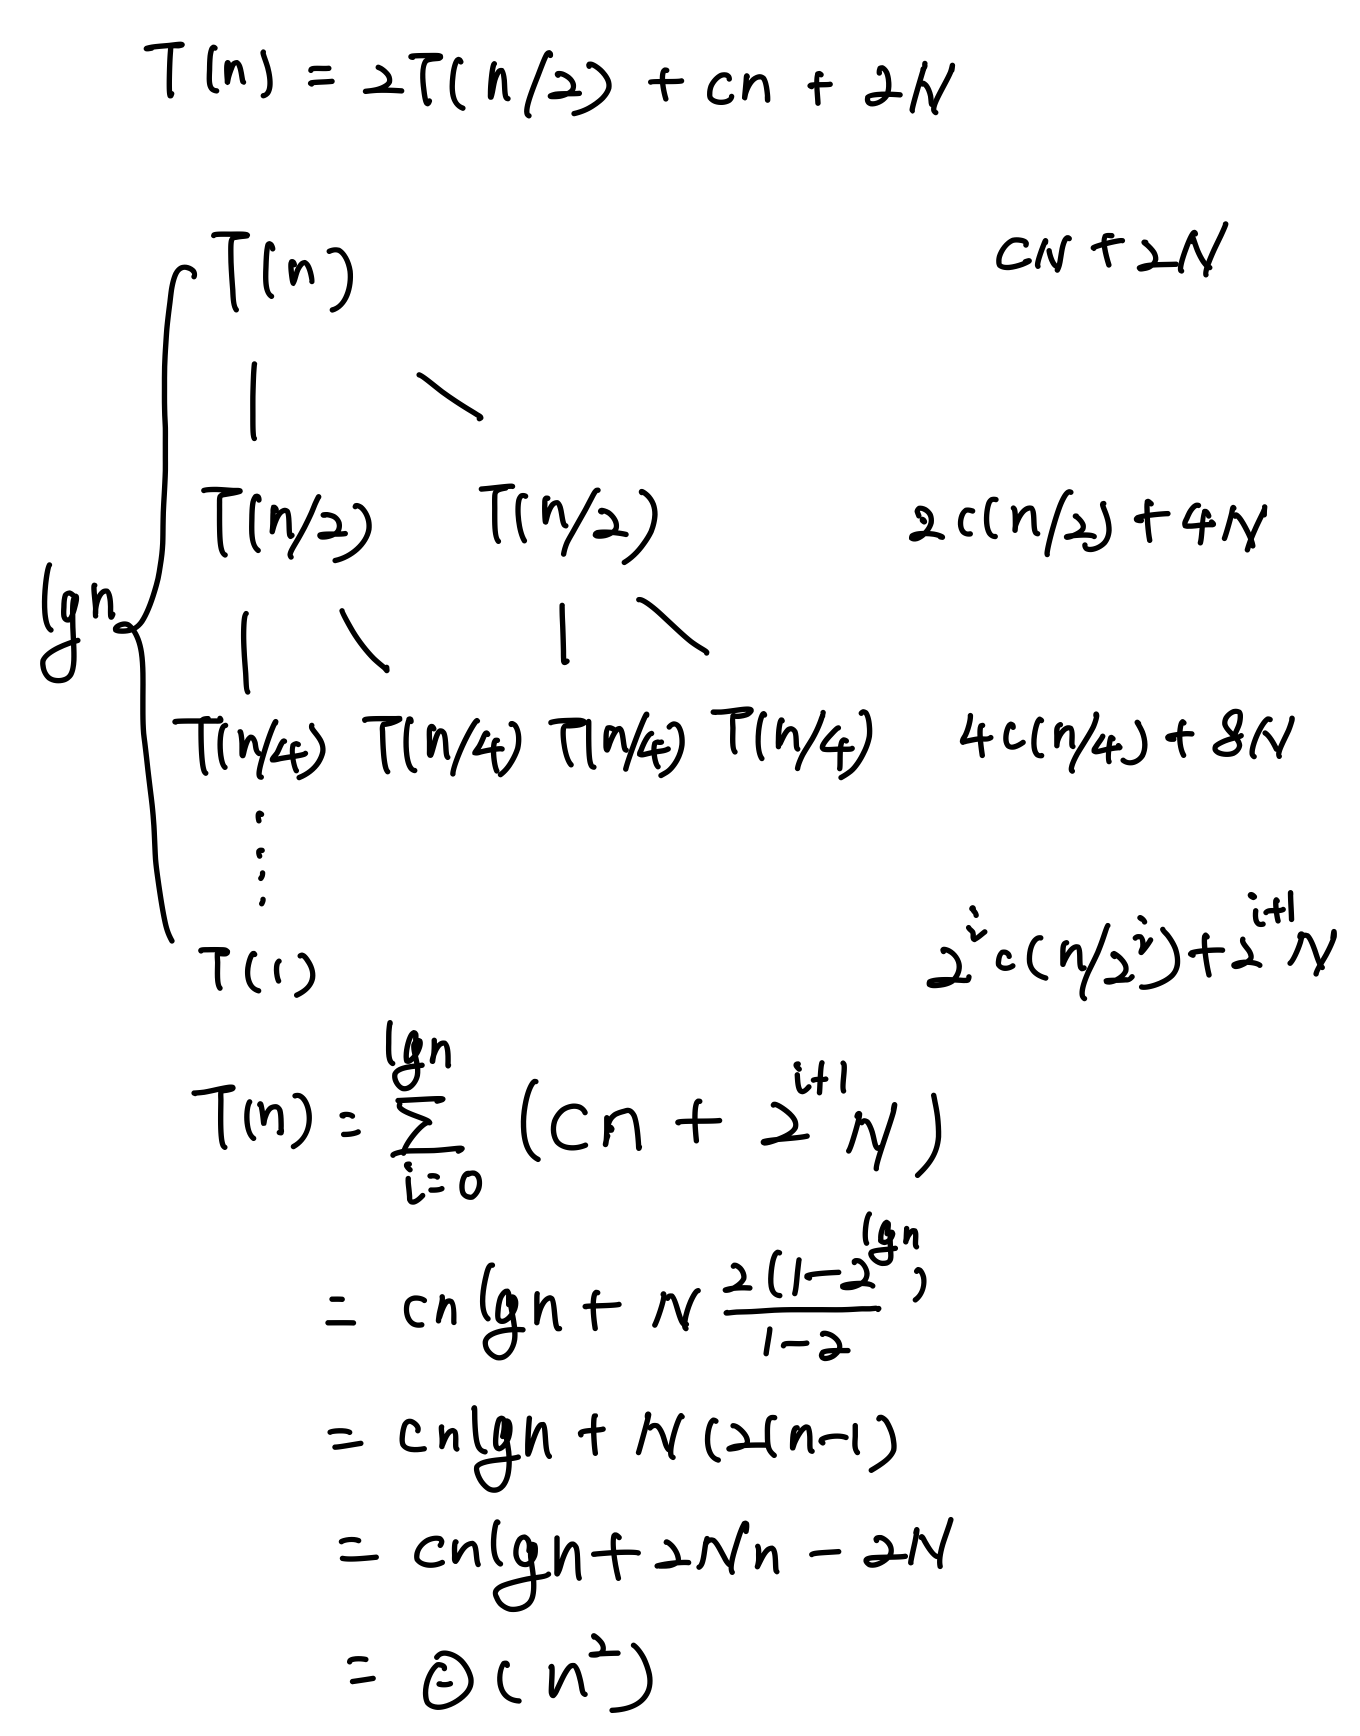 T(n) = 2T(n/2) + cn + 2N
T(n) cN + 2N
T(n/2) T(n/2) 2c(n/2) + 4N
lgn
T(n/4) T(n/4) T(n/4) T(n/4) 4c(n/4) + 8N
T(1) 2^i c(n/2^i) + 2^{i+1} N
T(n) = \sum_{i=0}^{lgn} (cn + 2^{i+1} N)
= cn lgn + N \frac{2(1-2^{lgn})}{1-2}
= cnlgn + N(2(n-1)
= cnlgn + 2Nn - 2N
= Θ(n^2)